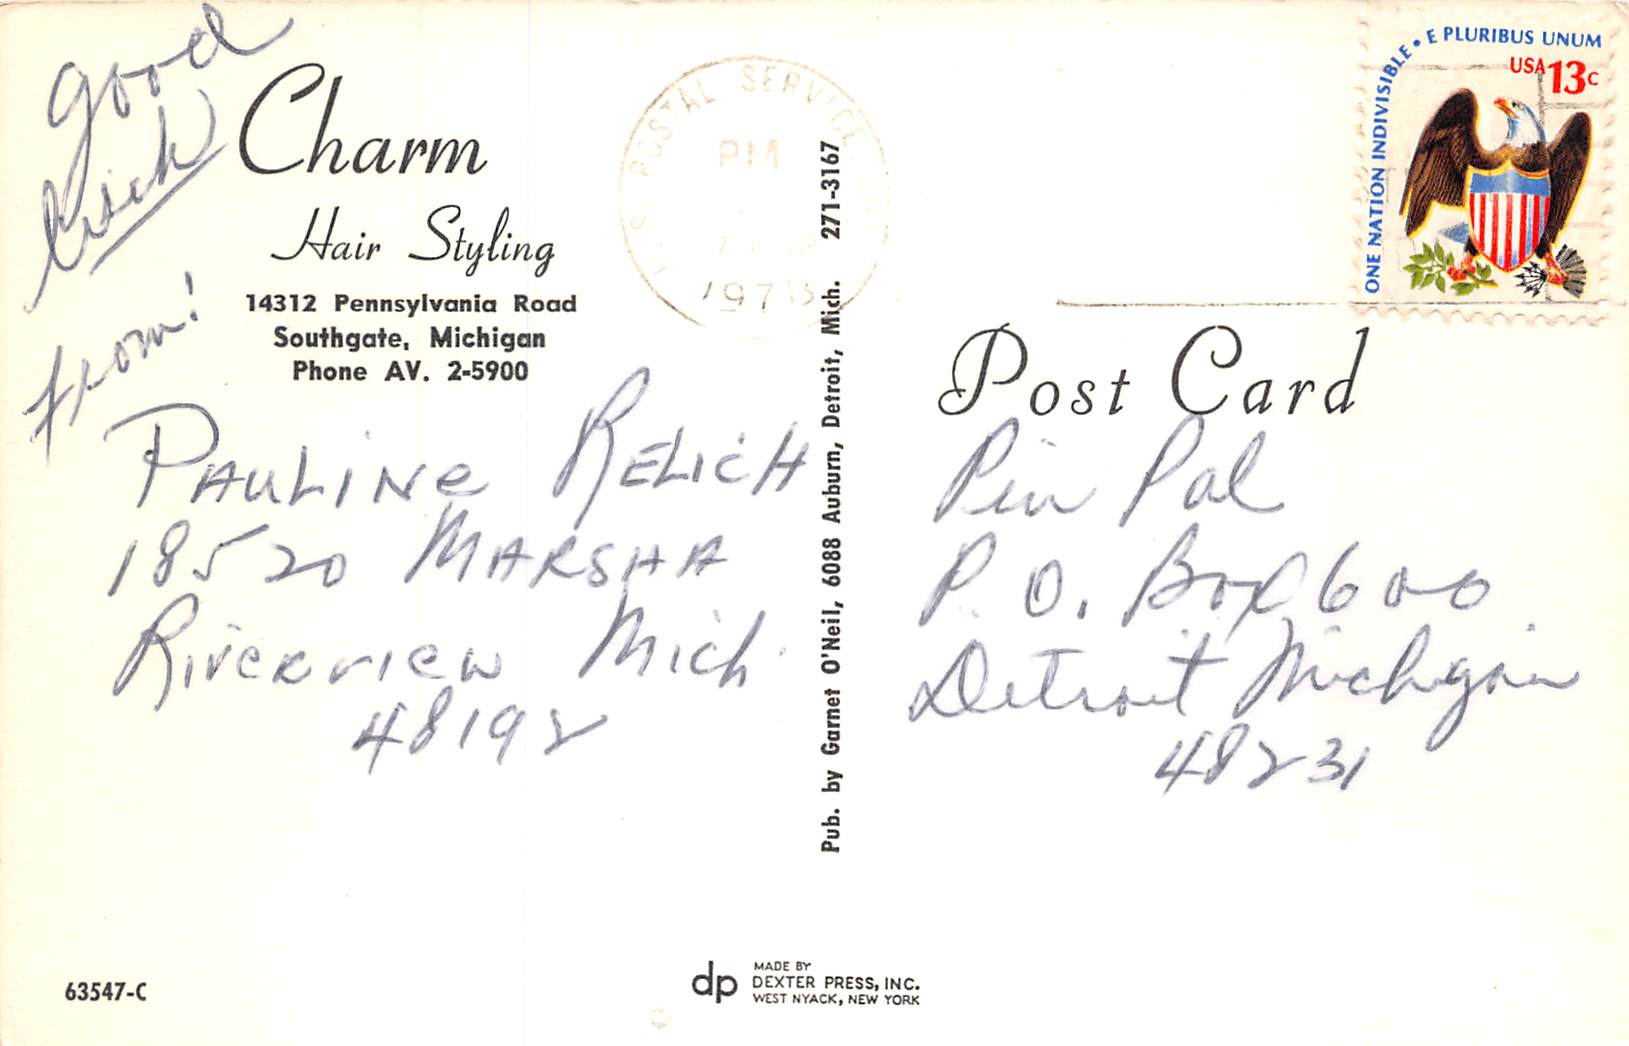 good
from!
Charm
Hair Styling
14312 Pennsylvania Road
Southgate, Michigan
Phone AV. 2-5900
PAULINE RELICH
18520 MARSHA
RIVERVIEW Mich.
48192
63547-C
U.S. POSTAL SERVICE
PM
197
Pub. by Garnet O'Neil, 6088 Auburn, Detroit, Mich. 271-3167
dp
MADE BY
DEXTER PRESS, INC.
WEST NYACK, NEW YORK
ONE NATION INDIVISIBLE • E PLURIBUS UNUM
USA 13c
Post Card
Pin Pal
P.O. Box 600
Detroit Michigan
48231